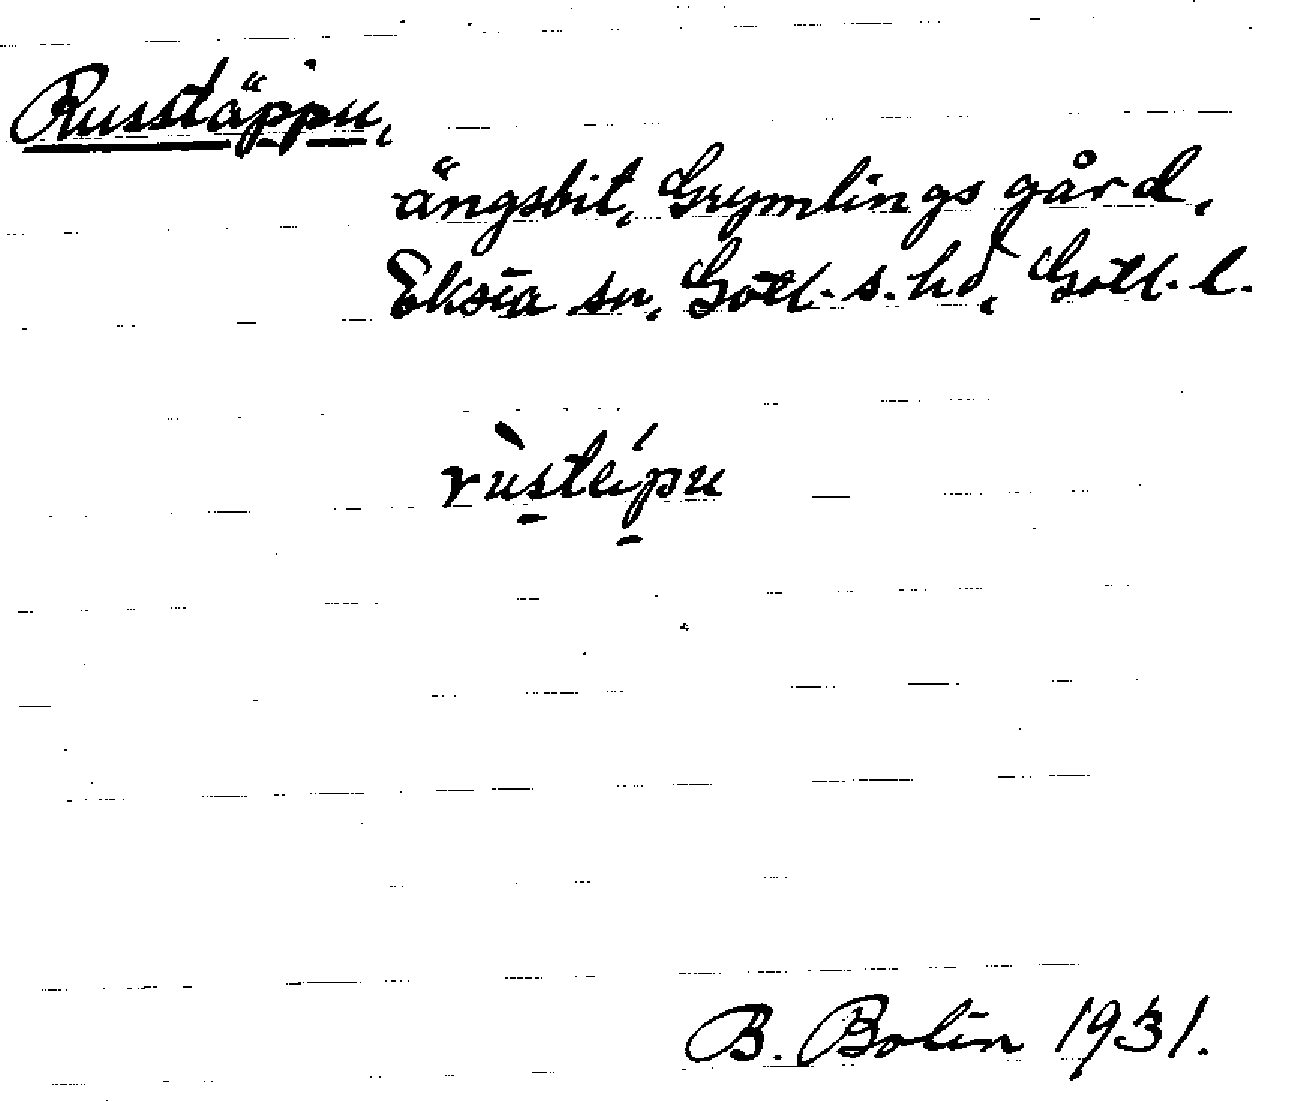 Russtäppu,
ängsbit, Grymlings gård,
Eksta sn, Gotl. s. hd, Gotl. l.
rùsteípu
B. Bolin 1931.